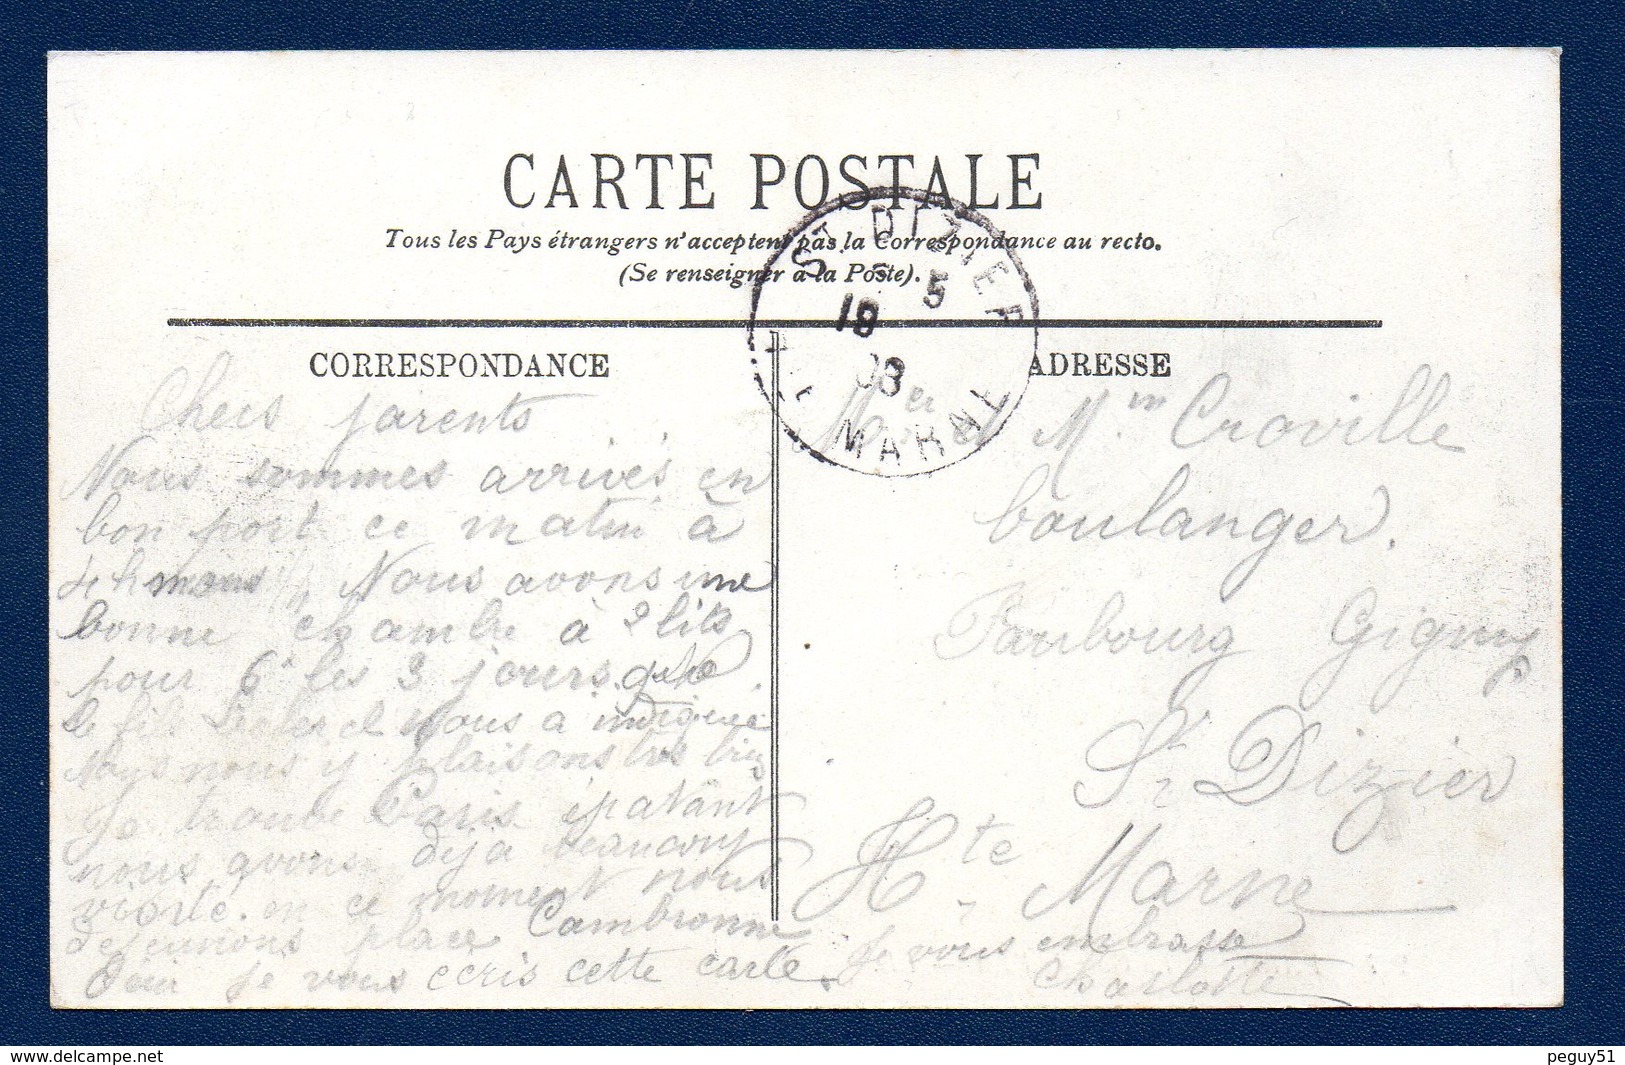 CARTE POSTALE
Tous les Pays étrangers n'acceptent pas la Correspondance au recto.
(Se renseigner à la Poste).
ST DIZIER
5
18
08
HTE MARNE
CORRESPONDANCE
Chers parents
Nous sommes arrivés en
bon port ce matin à
4 h moins Nous avons une
bonne chambre à 2 lits
pour 6 les 3 jours. que
le fils nous a indiquée
Nous nous y plaisons très bien
Je trouve Paris épatânt
nous avons déjà beaucoup
visité. en ce moment nous
dejeunons place Cambronne
d'où je vous écris cette carte. Je vous embrasse
Charlotte
ADRESSE
Mer et Mm Craville
boulanger.
Faubourg Gigny
St Dizier
Hte Marne
delcampe.net
peguy51